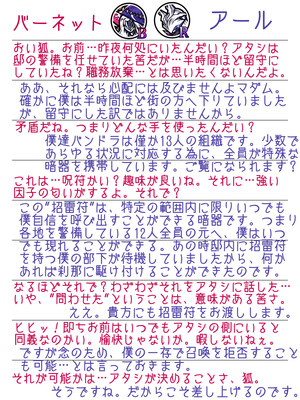 バーネット
アール
おい狐。お前…昨夜何処にいたんだい？アタシは
邸の警備を任せていた筈だが…半時間ほど留守に
していたね？職務放棄…とは思いたくないんだよ。
ああ、それなら心配には及びませんよマダム。
確かに僕は半時間ほど街の方へ下りていました
が、留守にした訳ではありませんから。
矛盾だね。つまりどんな手を使ったんだい？
僕達パンドラは僅か13人の組織です。少数で
あらゆる状況に対応する為に、全員が特殊な
暗器を携帯しています。ご覧になられます？
これは…呪符かい？趣味が良いね。それに…強い
因子の匂いがするよ。それで？
この"招雷符"は、特定の範囲内に限りいつでも
僕自信を呼び出すことができる暗器です。つまり
各地を警備している12人全員の元へ、僕はいつ
でも現れることができる。あの時邸内に招雷符
を持つ僕の部下が待機していましたから、何か
があれば刹那に駆け付けることができたのです。
なるほどそれで？わざわざそれをアタシに話した…
いや、"問わせた"ということは、意味がある筈さ。
ええ。貴方にも招雷符をお渡しします。
ヒヒッ！即ちお前はいつでもアタシの側にいると
同義なのかい。愉快じゃないか。暇しないねぇ。
ですが念のため、僕の一存で召喚を拒否すること
も可能…とは言っておきます。
それが可能かは…アタシが決めることさ、狐。
そうですね。だからこそ差し上げるのです。